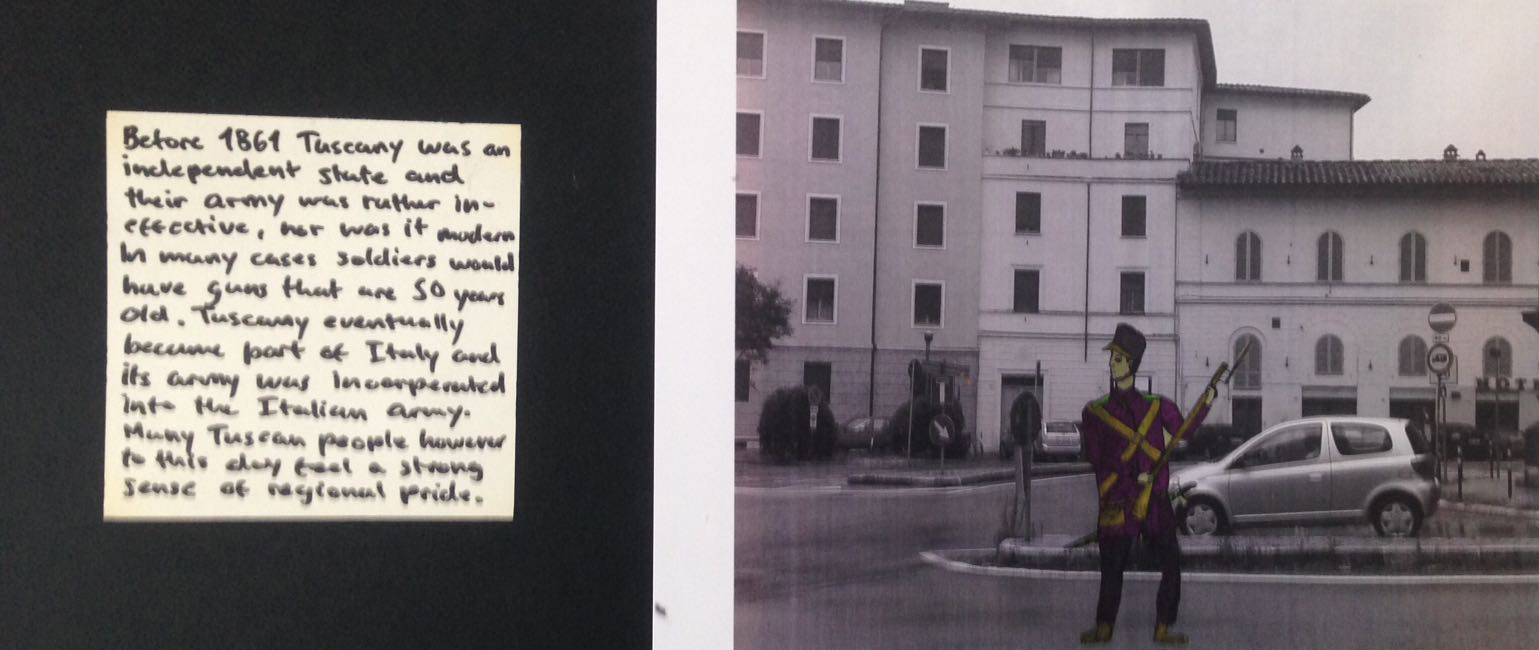 Before 1861 Tuscany was an
independent state and
their army was rather in-
effective, nor was it modern
In many cases soldiers would
have guns that are 50 years
old. Tuscany eventually
became part of Italy and
its army was incorperated
into the Italian army.
Many Tuscan people however
to this day feel a strong
sense of regional pride.